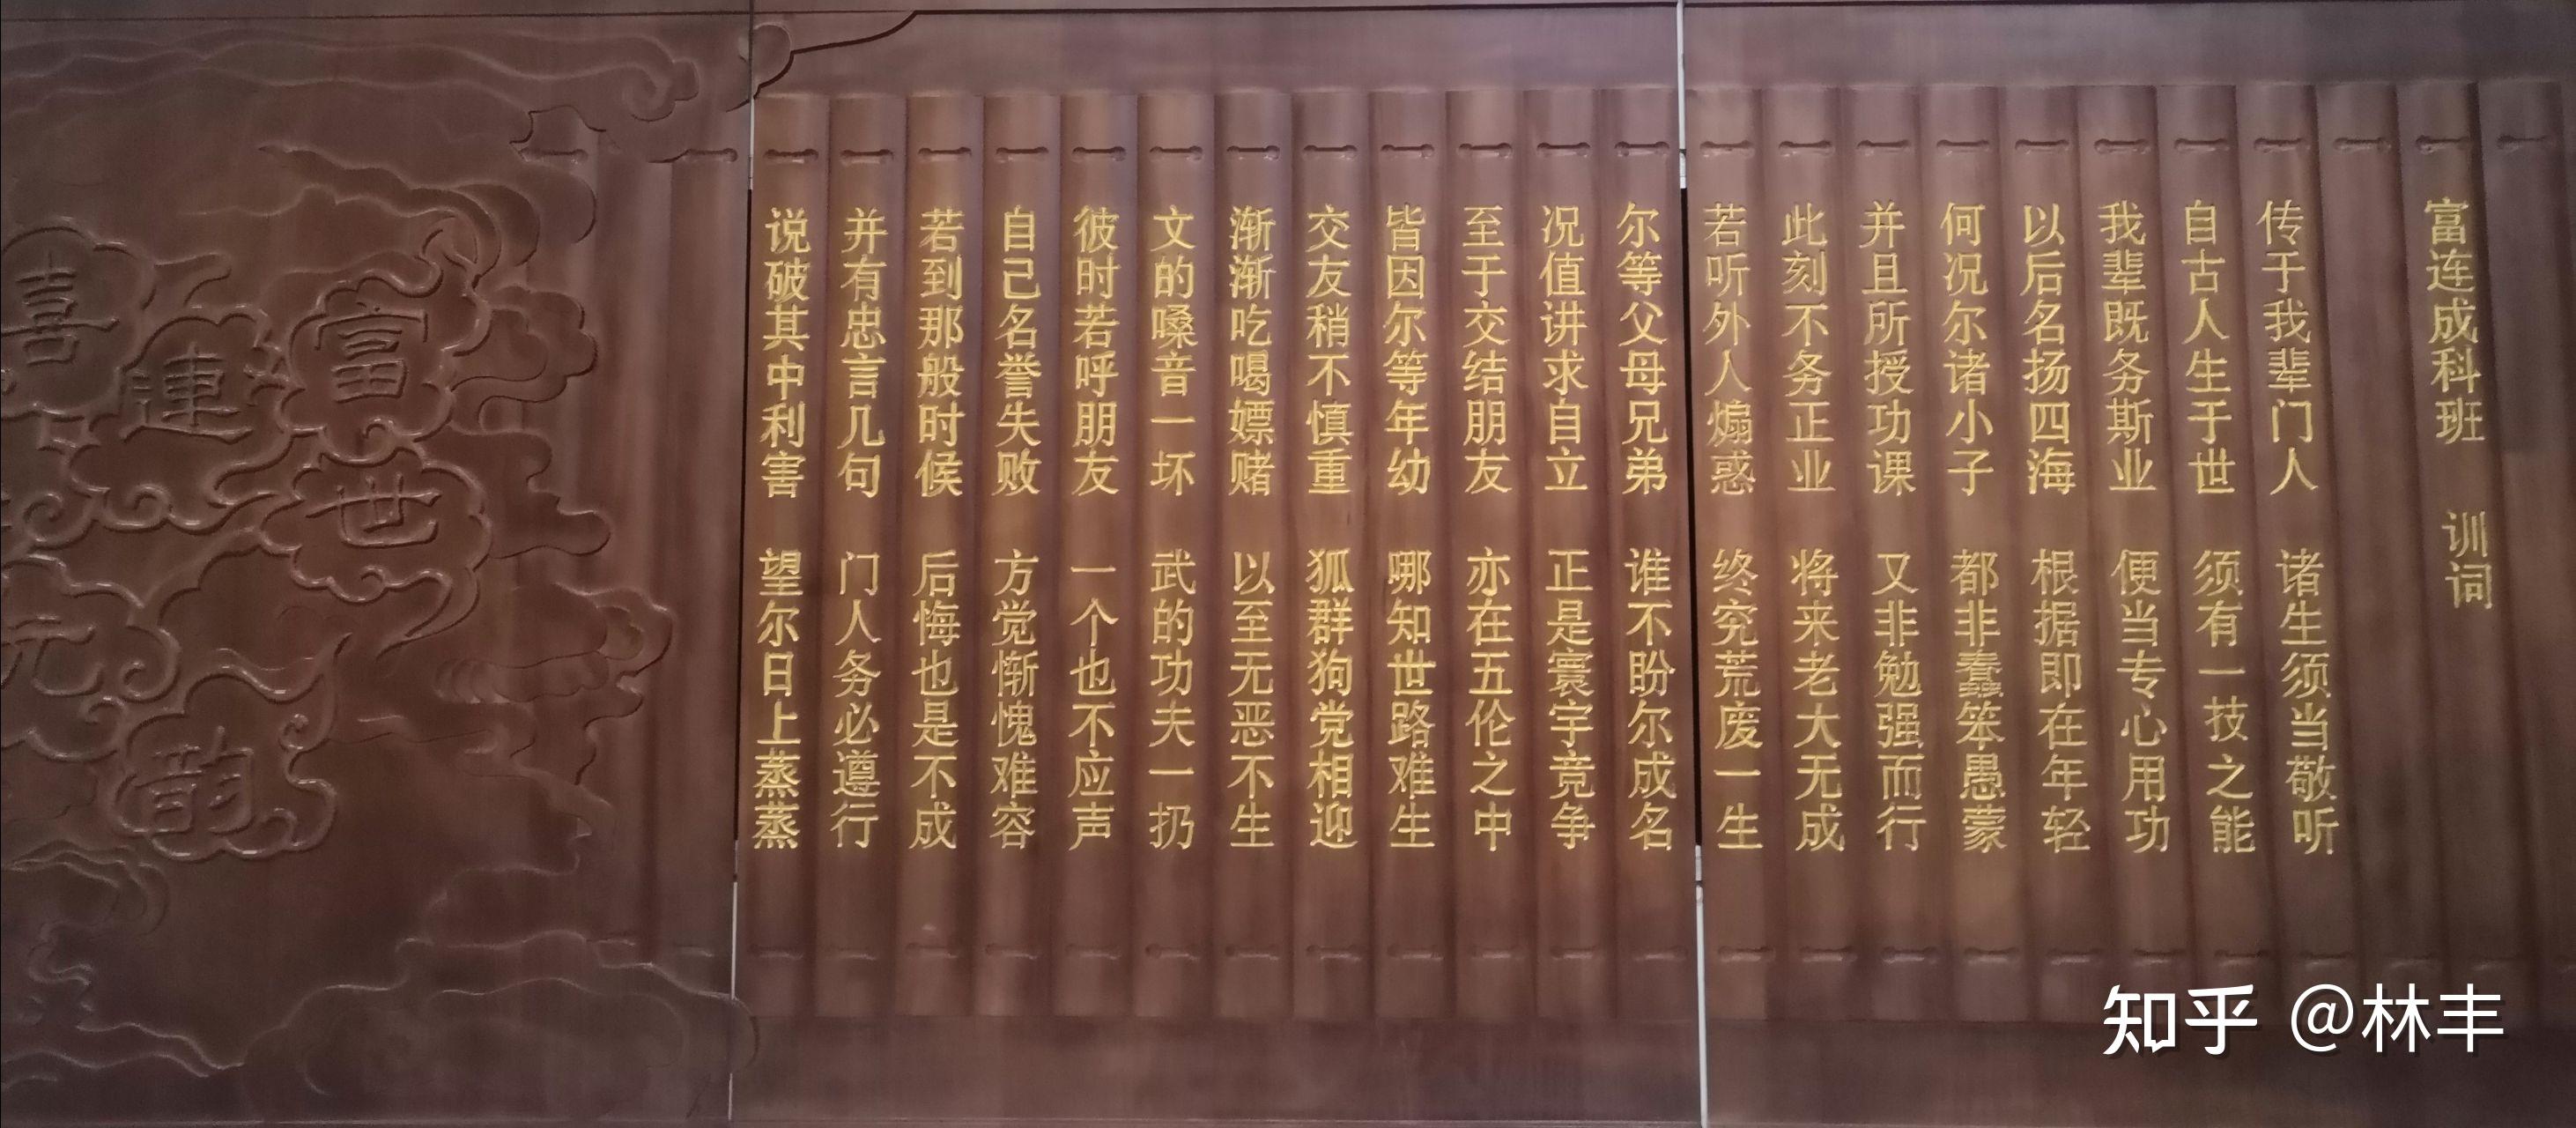 富连成科班 训词
传于我辈门人 诸生须当敬听
自古人生于世 须有一技之能
我辈既务斯业 便当专心用功
以后名扬四海 根据即在年轻
何况尔诸小子 都非蠢笨愚蒙
并且所授功课 又非勉强而行
此刻不务正业 将来老大无成
若听外人煽惑 终究荒废一生
尔等父母兄弟 谁不盼尔成名
况值讲求自立 正是寰宇竞争
至于交结朋友 亦在五伦之中
皆因尔等年幼 哪知世路难生
交友稍不慎重 狐群狗党相迎
渐渐吃喝嫖赌 以至无恶不生
文的嗓音一坏 武的功夫一扔
彼时若呼朋友 一个也不应声
自己名誉失败 方觉惭愧难容
若到那般时候 后悔也是不成
并有忠言几句 门人务必遵行
说破其中利害 望尔日上蒸蒸
富
世
連
喜
元
韵
知乎 @林丰